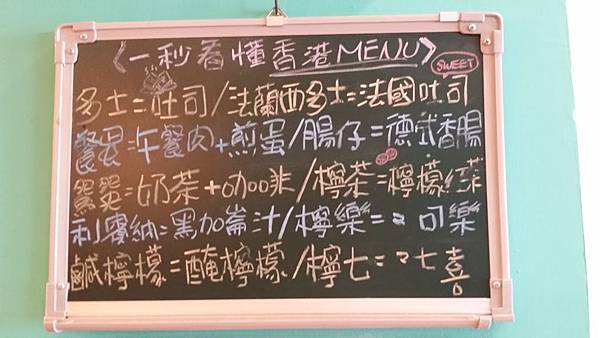 《一秒看懂香港MENU》
SWEET
多士=吐司/法蘭西多士=法國吐司
餐蛋=午餐肉+煎蛋/腸仔=德式香腸
鴛鴦=奶茶+咖啡/檸茶=檸檬紅茶
利賓納=黑加崙汁/檸樂=可樂
鹹檸檬=醃檸檬/檸七=七喜